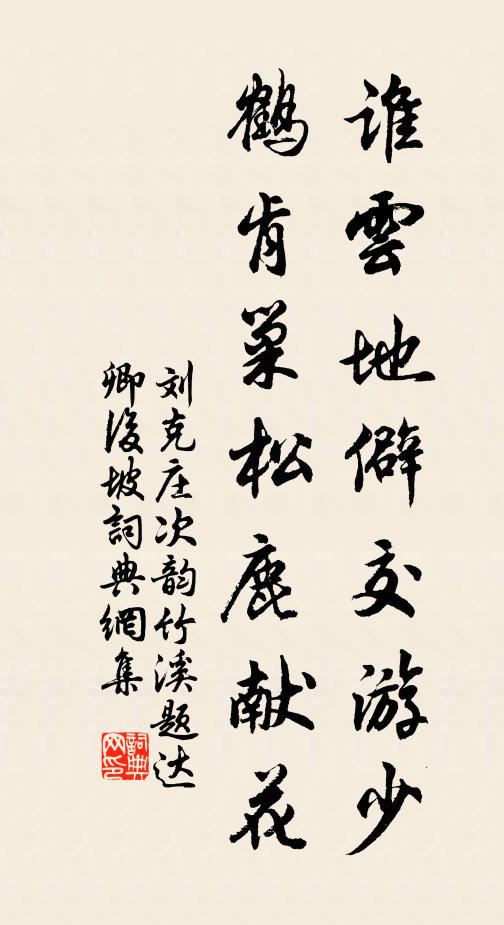 誰雲地僻交游少
鶴肯巢松鹿献花
刘克庄次韵竹溪题达
卿後坡詞典網集
詞典網印